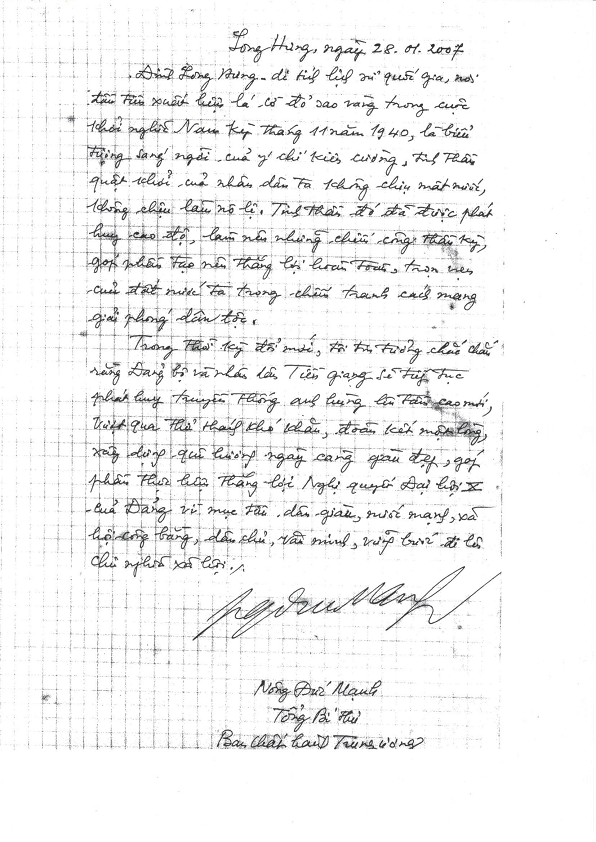 Long Hưng, ngày 28.01.2007
Đình Long Hưng - di tích lịch sử quốc gia, nơi
đầu tiên xuất hiện lá cờ đỏ sao vàng trong cuộc
khởi nghĩa Nam Kỳ tháng 11 năm 1940, là biểu
tượng sáng ngời của ý chí kiên cường, tinh thần
quật khởi của nhân dân ta không chịu mất nước,
không chịu làm nô lệ. Tinh thần đó đã được phát
huy cao độ, làm nên những chiến công thần kỳ,
góp phần tạo nên thắng lợi hoàn toàn, trọn vẹn
của đất nước ta trong chiến tranh cách mạng
giải phóng dân tộc.
Trong thời kỳ đổi mới, tôi tin tưởng chắc chắn
rằng Đảng bộ và nhân dân Tiền giang sẽ tiếp tục
phát huy truyền thống anh hùng lên tầm cao mới,
vượt qua thử thách khó khăn, đoàn kết một lòng,
xây dựng quê hương ngày càng giàu đẹp, góp
phần thực hiện thắng lợi Nghị quyết Đại hội X
của Đảng vì mục tiêu dân giàu, nước mạnh, xã
hội công bằng, dân chủ, văn minh, vững bước đi lên
chủ nghĩa xã hội./.
Nông Đức Mạnh
Tổng Bí thư
Ban Chấp hành Trung ương